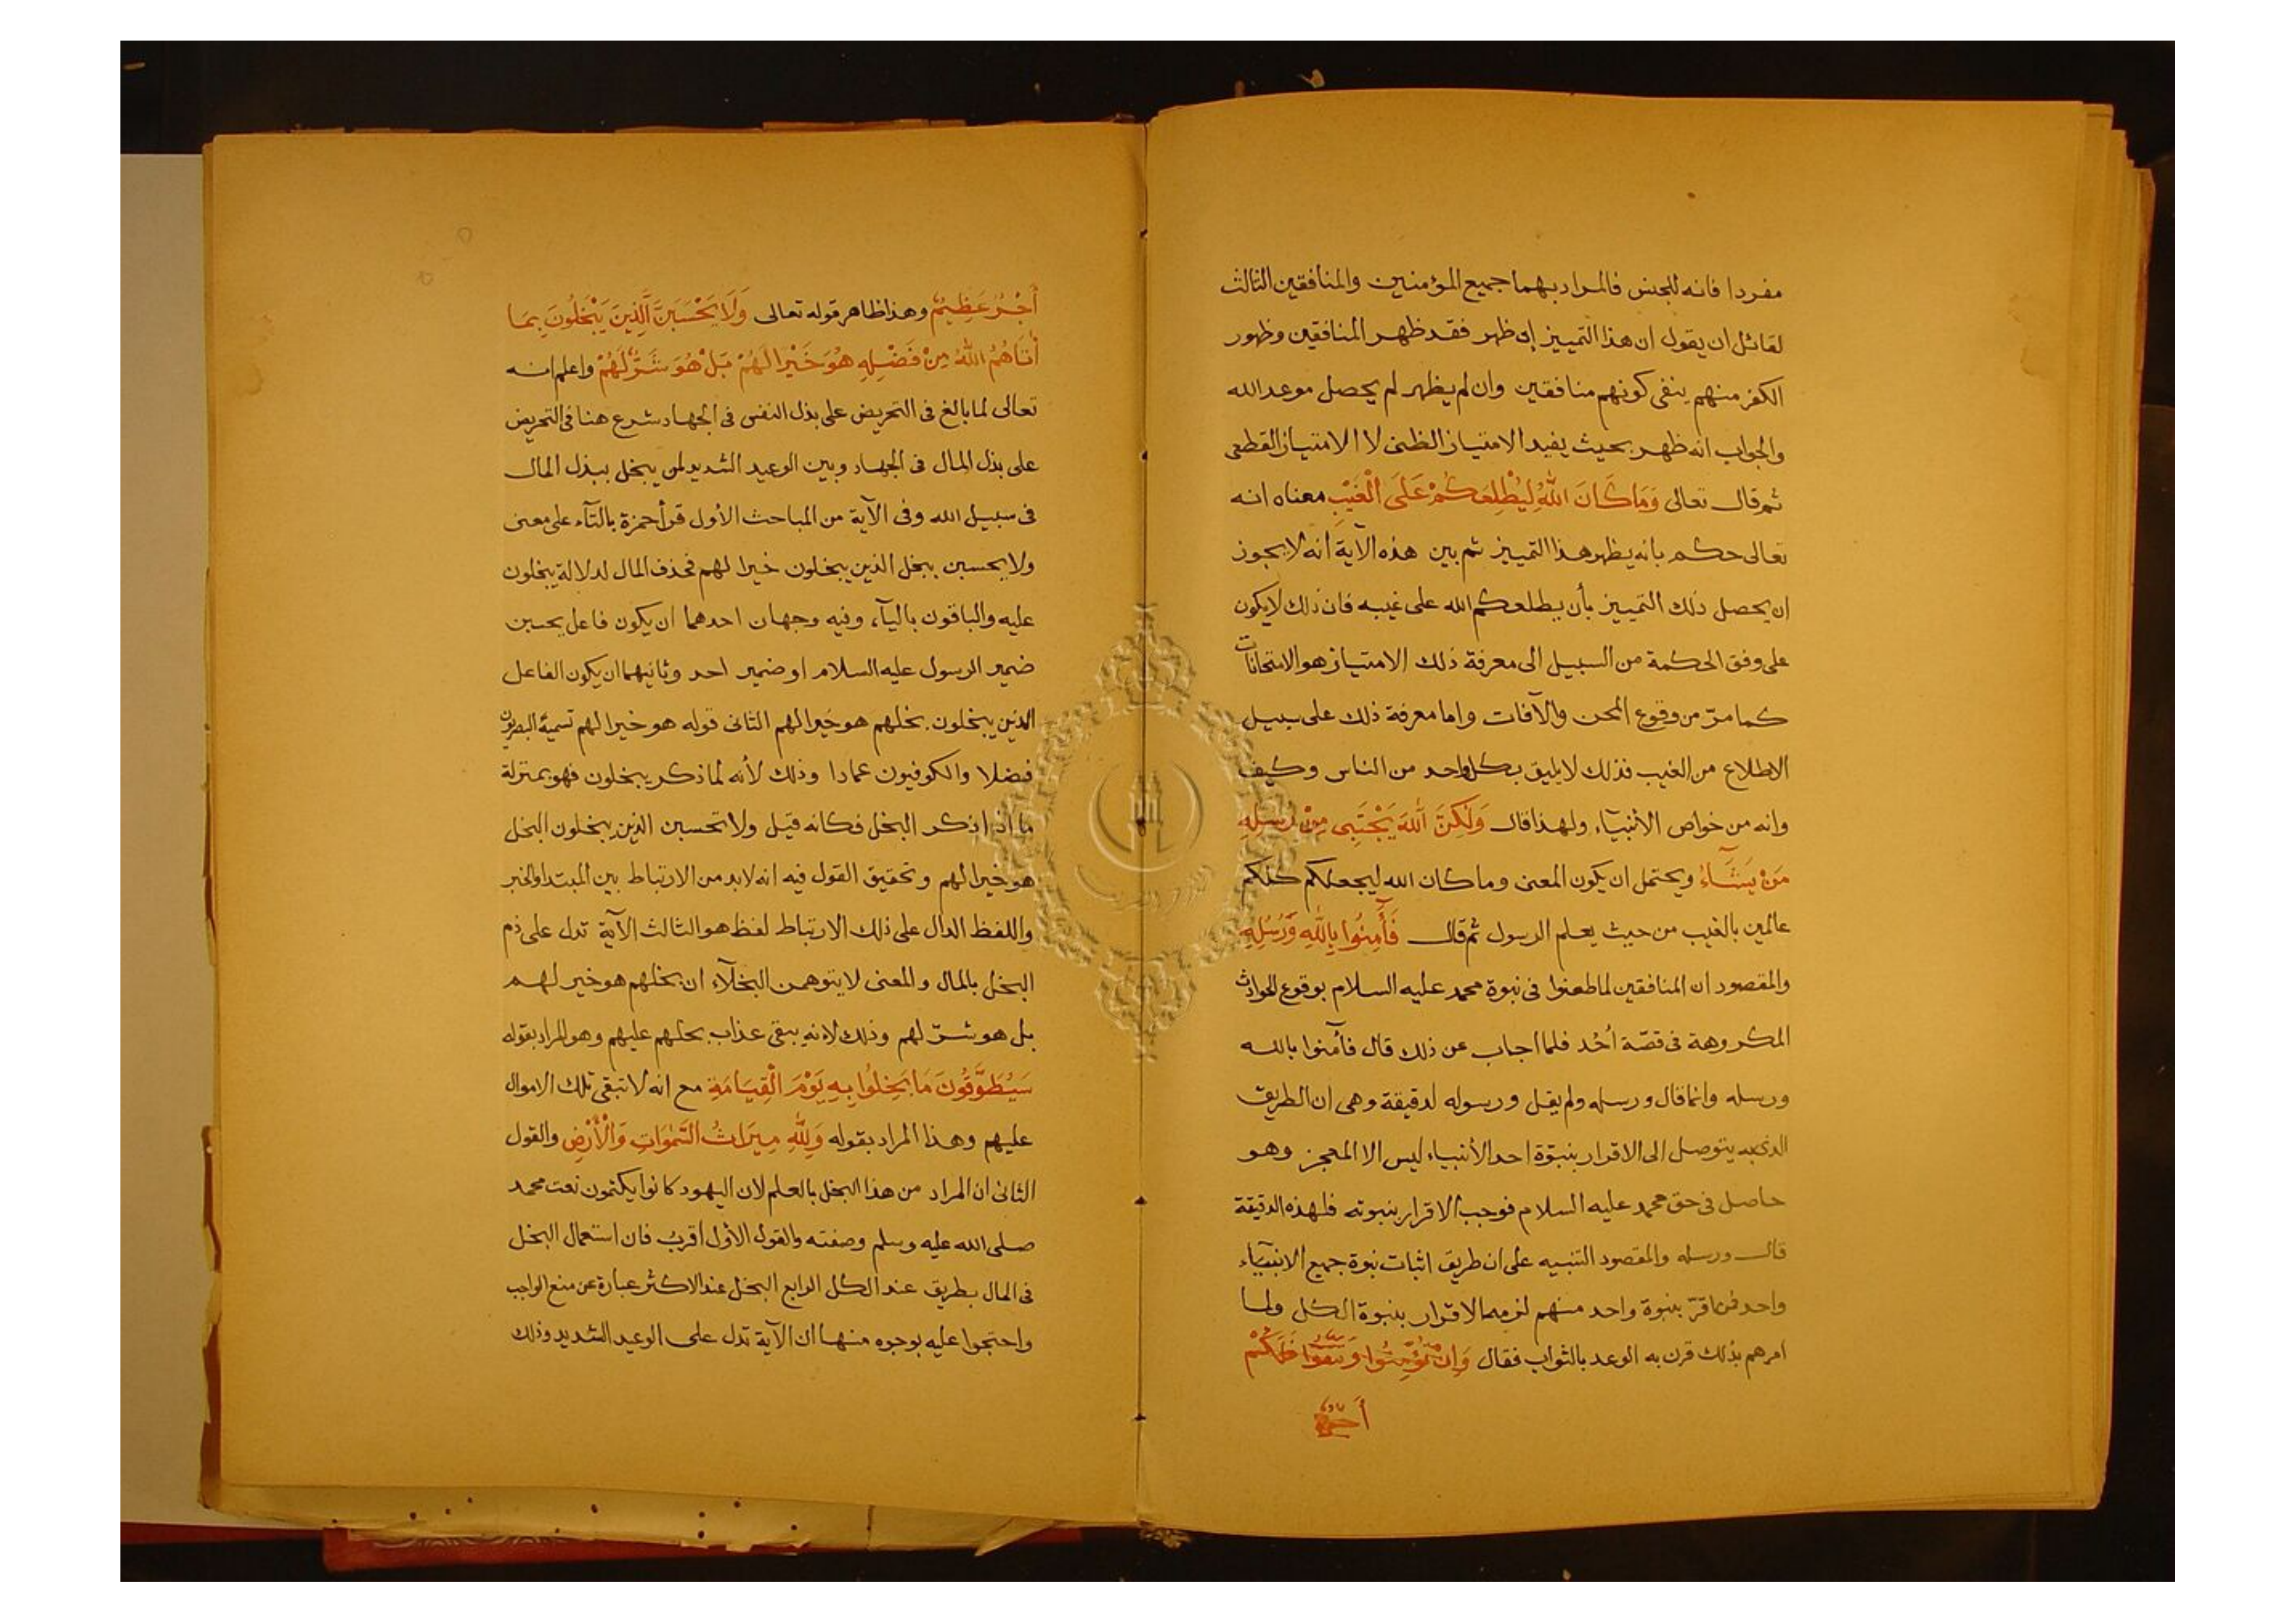 مفردا فانه للجنس فالمراد بهما جميع المؤمنين والمنافقين الثالث
لقائل ان يقول ان هذا التمييز إن ظهر فقد ظهر المنافقين وظهور
الكفر منهم ينفى كونهم منافقين وان لم يظهر لم يحصل موعد الله
والجواب انه ظهر بحيث يفيد الامتياز الظنى لا الامتياز القطعى
ثم قال تعالى وَمَا كَانَ اللهُ لِيُطْلِعَكُمْ عَلَى الْغَيْبِ معناه انه
تعالى حكم بانه يظهر هذا التمييز ثم بين هذه الآية أنه لا يجوز
ان يحصل ذلك التمييز بأن يطلعكم الله على غيبه فان ذلك لا يكون
على وفق الحكمة من السبيل الى معرفة ذلك الامتياز هو الامتحانات
كما مرّ من وقوع المحن والآفات واما معرفة ذلك على سبيل
الاطلاع من الغيب فذلك لا يليق بكل واحد من الناس وكيف
وانه من خواص الأنبيآء ولهذا قال وَلَكِنَّ اللهَ يَجْتَبِى مِنْ رُسُلِهِ
مَنْ يَشَآءُ ويحتمل ان يكون المعنى وما كان الله ليجعلكم كلكم
عالمين بالغيب من حيث يعلم الرسول ثم قال فَآمِنُوا بِاللهِ وَرُسُلِهِ
والمقصود ان المنافقين لما طعنوا فى نبوة محمد عليه السلام بوقوع الحوادث
المكروهة فى قصّة أحُد فلما اجاب عن ذلك قال فآمنوا بالله
ورسله وانما قال ورسله ولم يقل ورسوله لدقيقة وهى ان الطريق
الذى به يتوصل الى الاقرار بنبوّة احد الأنبياء ليس الا المعجز وهو
حاصل فى حق محمد عليه السلام فوجب الاقرار بنبوته فلهذه الدقيقة
قال ورسله والمقصود التنبيه على ان طريق اثبات نبوة جميع الانبيآء
واحد فمن اقرّ بنبوة واحد منهم لزمه الاقرار بنبوة الكل ولما
امرهم بذلك قرن به الوعد بالثواب فقال وَاِنْ تُؤْمِنُوا وَتَتَّقُوا فَلَكُمْ
أجر
أَجْرٌ عَظِيمٌ وهذا ظاهر قوله تعالى وَلَا يَحْسَبَنَّ الَّذِينَ يَبْخَلُونَ بِمَا
أتَاهُمُ اللهُ مِنْ فَضْلِهِ هُوَ خَيْرا لَهُمْ بَلْ هُوَ شَرٌّ لَهُمْ واعلم انه
تعالى لما بالغ فى التحريض على بذل النفس فى الجهاد شرع هنا فى التحريض
على بذل المال فى الجهاد وبين الوعيد الشديد لمن يبخل ببذل المال
فى سبيل الله وفى الآية من المباحث الأول قرأ حمزة بالتآء على معنى
ولا يحسبن بخل الذين يبخلون خيرا لهم فحذف المال لدلالة يبخلون
عليه والباقون باليآء وفيه وجهان احدهما ان يكون فاعل يحسبن
ضمير الرسول عليه السلام او ضمير احد وثانيهما ان يكون الفاعل
الذين يبخلون بخلهم هو خيرا لهم الثانى قوله هو خيرا لهم تسميه البصريون
فضلا والكوفيون عمادا وذلك لأنه لما ذكر يبخلون فهو بمنزلة
ما اذا ذكر البخل فكانه قيل ولا تحسبن الذين يبخلون البخل
هو خيرا لهم وتحقيق القول فيه انه لابد من الارتباط بين المبتدا والخبر
واللفظ الدال على ذلك الارتباط لفظ هو الثالث الآية تدل على ذم
البخل بالمال والمعنى لا يتوهمن البخلآء ان بخلهم هو خير لهم
بل هو شرّ لهم وذلك لانه يبقى عذاب بخلهم عليهم وهو المراد بقوله
سَيُطَوَّقُونَ مَا بَخِلُوا بِهِ يَوْمَ الْقِيَامَةِ مع انه لا تبقى تلك الاموال
عليهم وهذا المراد بقوله وَلِلهِ مِيرَاثُ السَّمٰوَاتِ وَالْأَرْضِ والقول
الثانى ان المراد من هذا البخل بالعلم لان اليهود كانوا يكتمون نعت محمد
صلى الله عليه وسلم وصفته والقول الأول أقرب فان استعمال البخل
فى المال بطريق عند الكل الرابع البخل عند الاكثر عبارة عن منع الواجب
واحتجوا عليه بوجوه منها ان الآية تدل على الوعيد الشديد وذلك